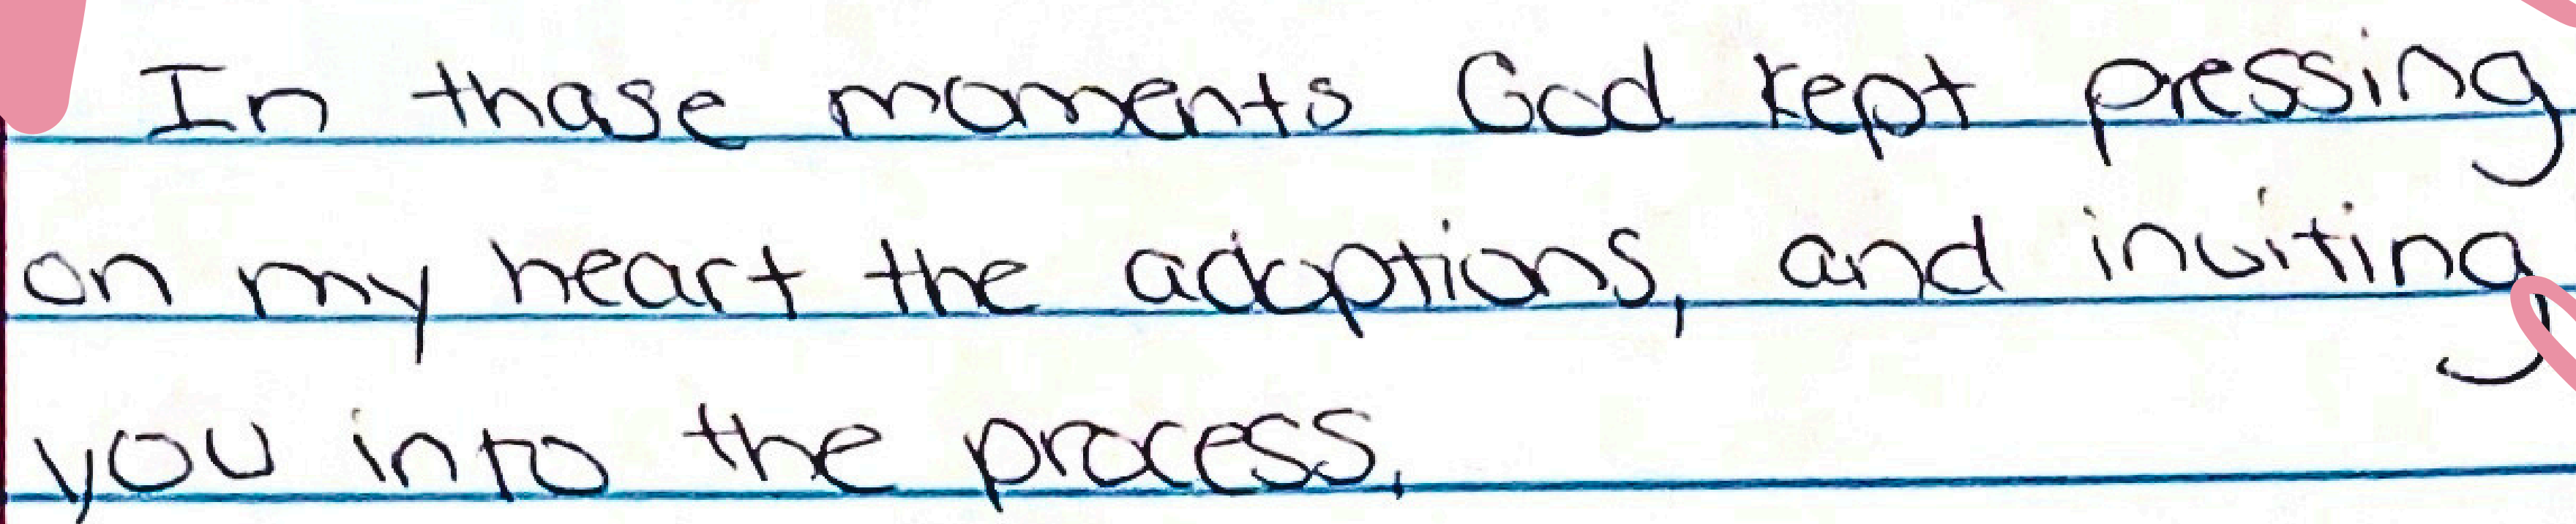 In those moments God kept pressing
on my heart the adoptions, and inviting
you into the process,